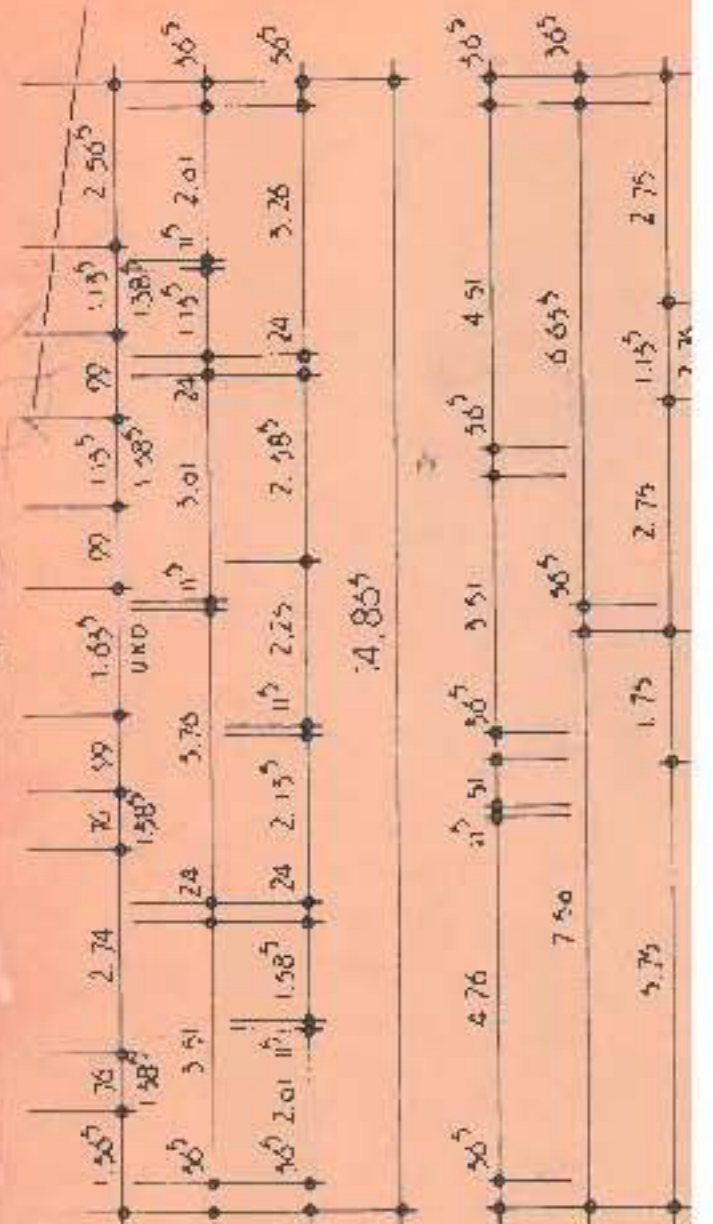 1.36⁵ 76 2.74 76 99 1.63⁵ 99 1.13⁵ 99 1.13⁵ 2.56⁵
1.38⁵ 1.38⁵ UKD 1.38⁵ 1.38⁵
36⁵ 3.51 24 3.76 11⁵ 3.01 24 1.13⁵ 11⁵ 2.01 36⁵
36⁵ 2.01 11⁵ 1.58⁵ 24 2.13⁵ 11⁵ 2.25 2.58⁵ 24 3.26 36⁵
14.86⁵
36⁵ 4.76 11⁵ 51 36⁵ 3.51 36⁵ 4.51 36⁵
7.50 36⁵ 6.63⁵ 36⁵
5.75 1.75 2.75 1.13⁵ 2.75